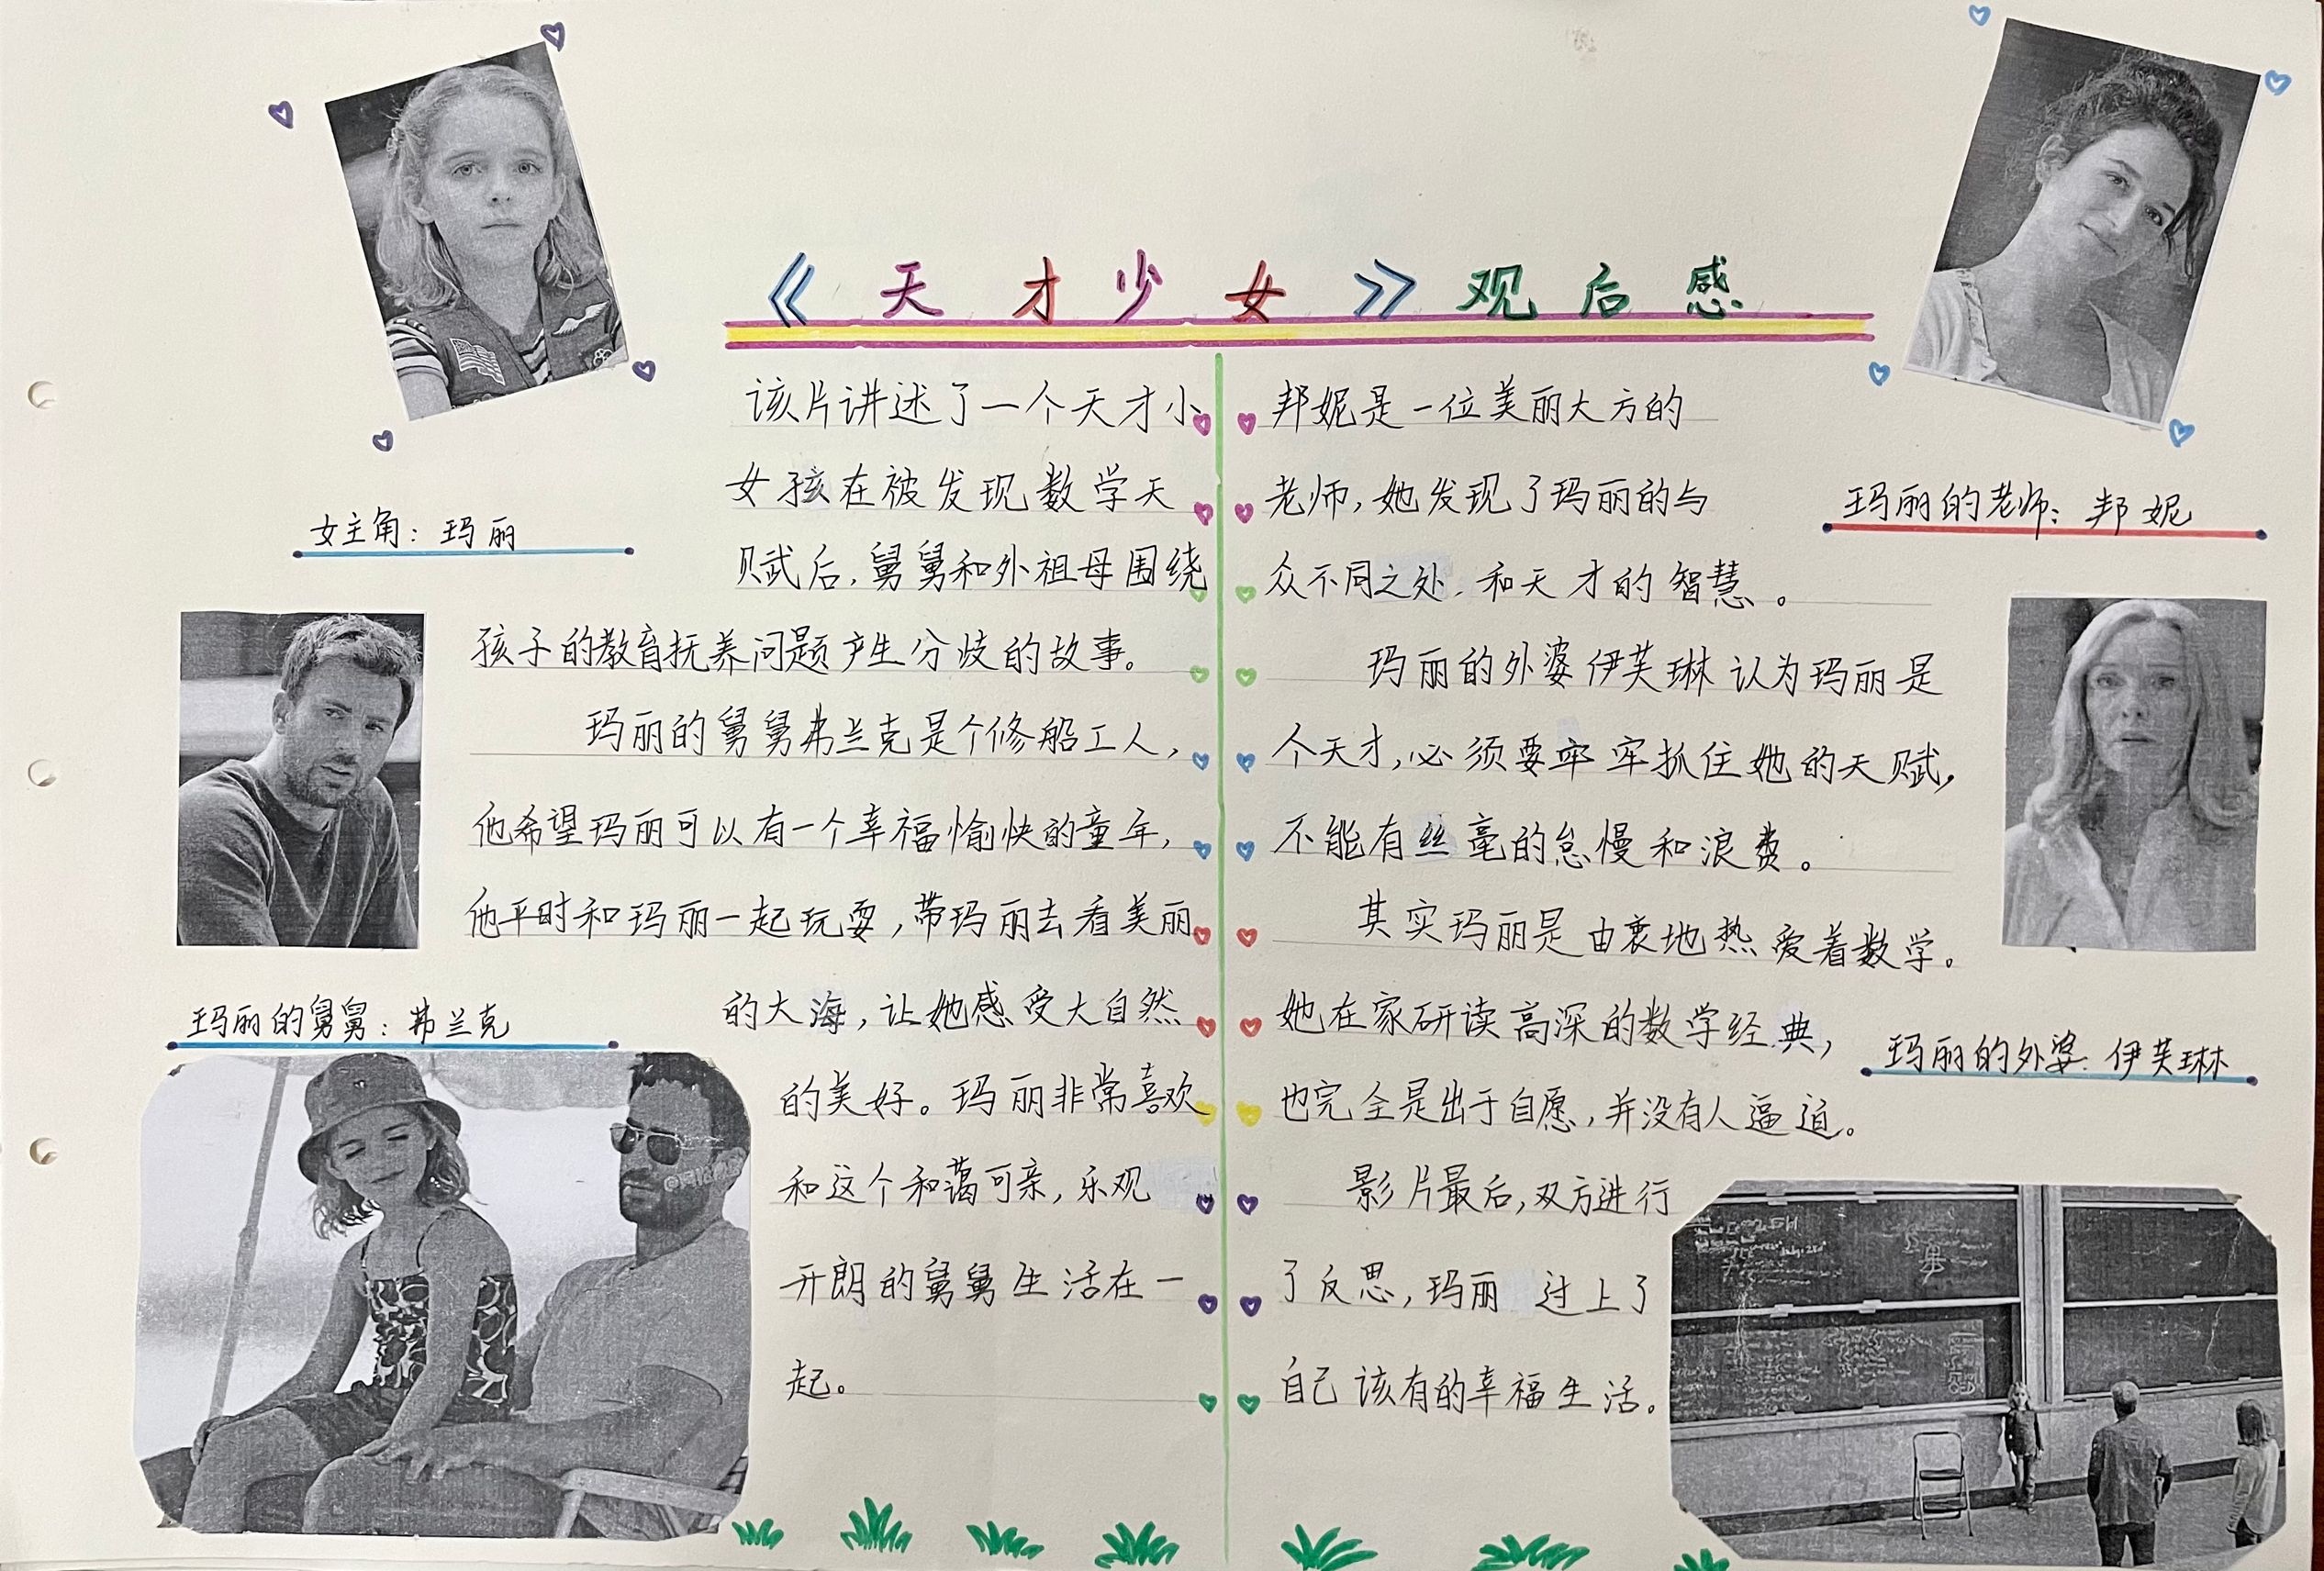 《天才少女》观后感
女主角：玛丽
玛丽的舅舅：弗兰克
该片讲述了一个天才小
女孩在被发现数学天
赋后，舅舅和外祖母围绕
孩子的教育抚养问题产生分歧的故事。
玛丽的舅舅弗兰克是个修船工人，
他希望玛丽可以有一个幸福愉快的童年，
他平时和玛丽一起玩耍，带玛丽去看美丽
的大海，让她感受大自然
的美好。玛丽非常喜欢
和这个和蔼可亲，乐观
开朗的舅舅生活在一
起。
邦妮是一位美丽大方的
老师，她发现了玛丽的与
众不同之处，和天才的智慧。
玛丽的外婆伊芙琳认为玛丽是
个天才，必须要牢牢抓住她的天赋，
不能有丝毫的怠慢和浪费。
其实玛丽是由衷地热爱着数学。
她在家研读高深的数学经典，
也完全是出于自愿，并没有人逼迫。
影片最后，双方进行
了反思，玛丽 过上了
自己该有的幸福生活。
玛丽的老师：邦妮
玛丽的外婆：伊芙琳